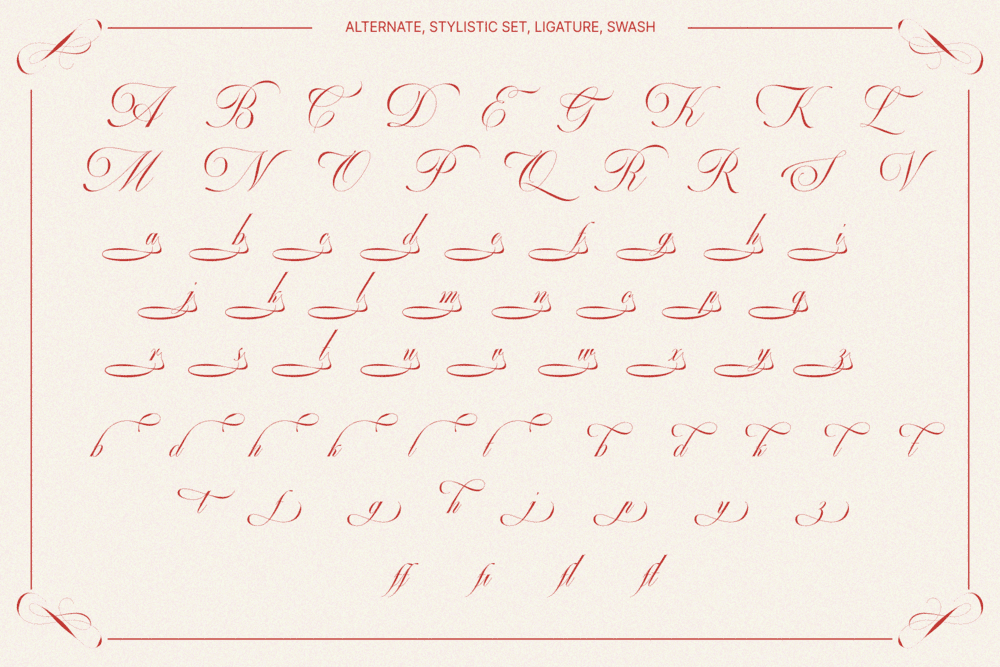 ALTERNATE, STYLISTIC SET, LIGATURE, SWASH
A B C D E G K K L
M N O P Q R R S V
a b c d e f g h i
j k l m n o p q
r s t u v w x y z
b d h k l t b d k l t
t f g h j p y z
ff fi fl